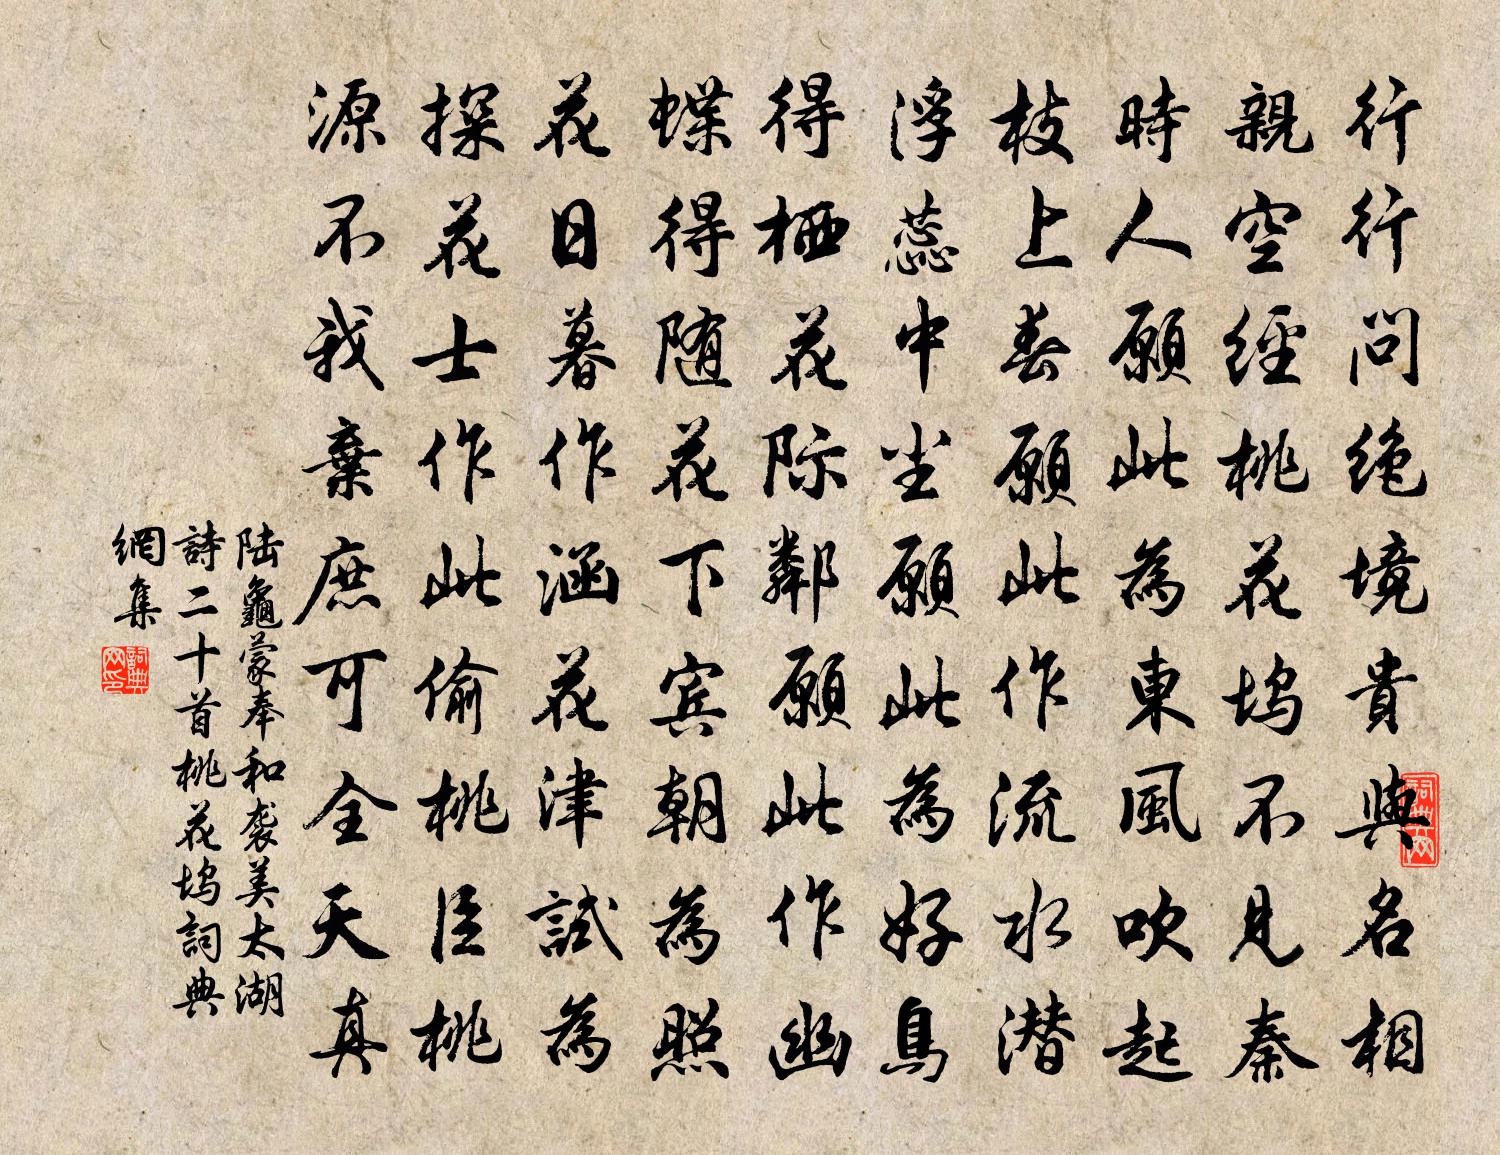 行行問絶境貴與名相
親空經桃花塢不見秦
時人願此為東風吹起
枝上春願此作流水潜
浮蕊中尘願此為好鳥
得栖花际鄰願此作幽
蝶得随花下宾朝為照
花日暮作涵花津試為
探花士作此偷桃臣桃
源不我棄庶可全天真
陆龜蒙奉和袭美太湖
詩二十首桃花塢詞典
網集